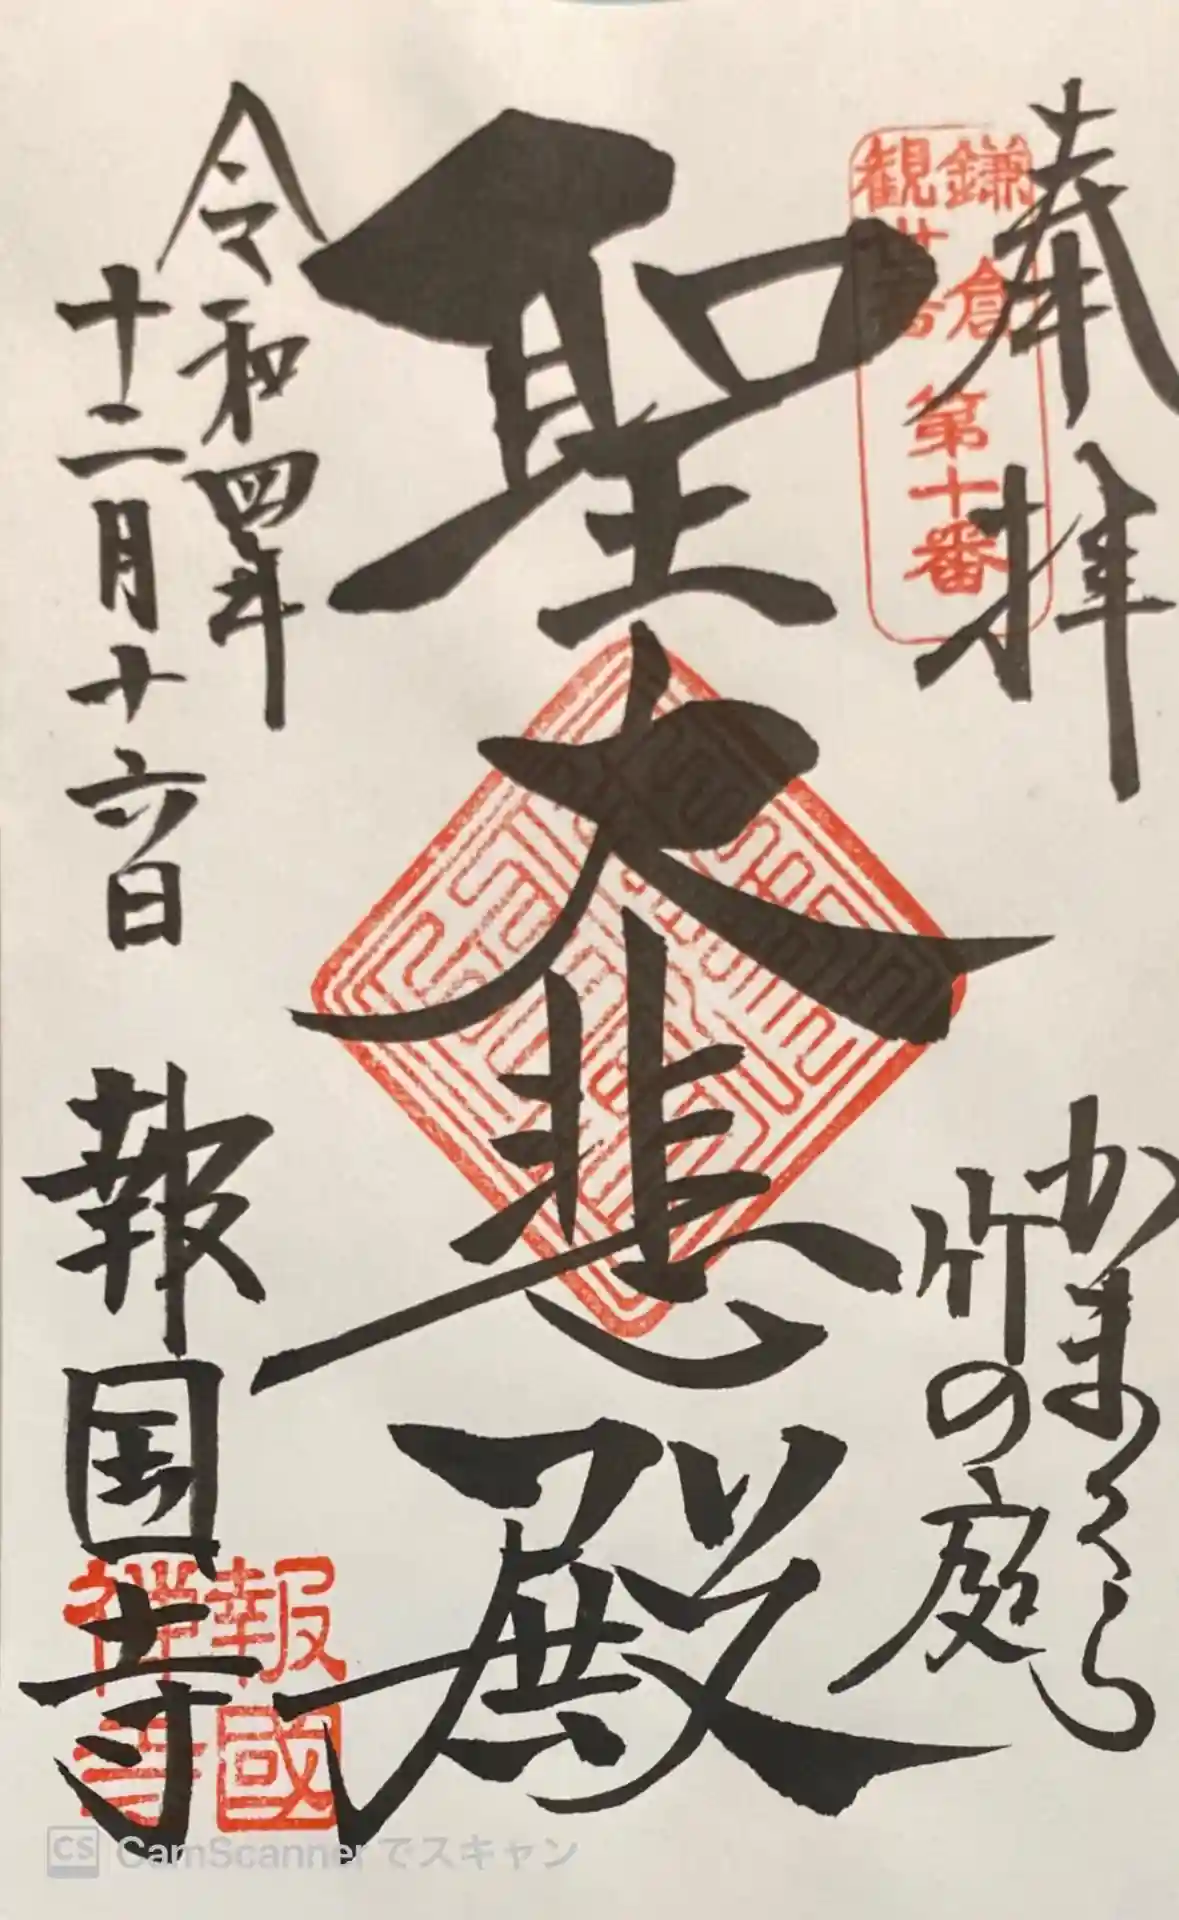 奉拝
鎌倉
観世音
第十番
かまくら
竹の庭
聖大悲殿
令和四年
十二月十六日
報国寺
報國
禅寺
CS CamScannerでスキャン